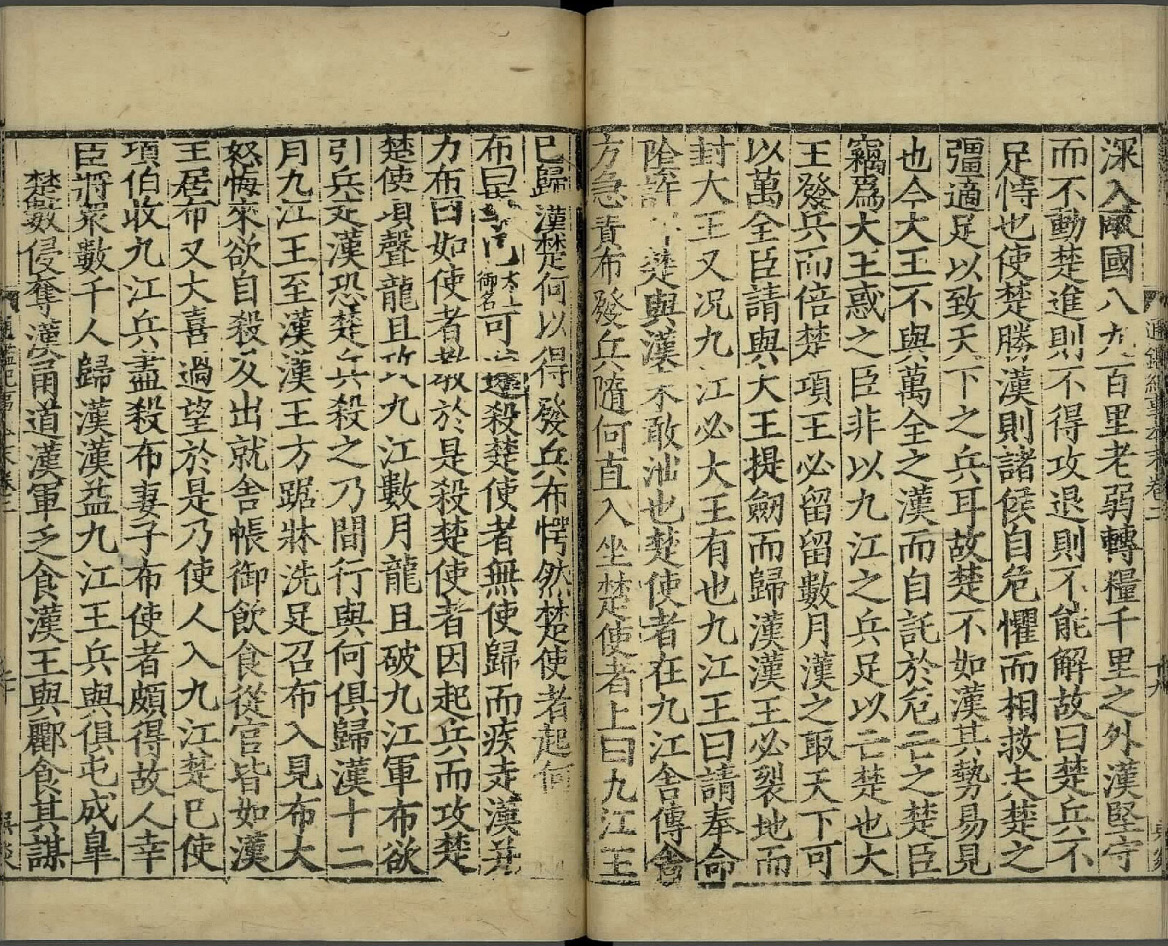 深入敵國八九百里老弱轉糧千里之外漢堅守
而不動楚進則不得攻退則不能解故曰楚兵不
足恃也使楚勝漢則諸侯自危懼而相救夫楚之
彊適足以致天下之兵耳故楚不如漢其勢易見
也今大王不與萬全之漢而自託於危亡之楚臣
竊爲大王惑之臣非以九江之兵足以亡楚也大
王發兵而倍楚項王必留留數月漢之取天下可
以萬全臣請與大王提劒而歸漢漢王必裂地而
封大王又况九江必大王有也九江王曰請奉命
陰許楚與漢不敢泄也楚使者在九江舍傳舍
方急責布發兵隨何直入坐楚使者上曰九江王
巳歸漢楚何以得發兵布愕然楚使者起何
布曰事巳御名可遂殺楚使者無使歸而疾走漢并
力布曰如使者敎於是殺楚使者因起兵而攻楚
楚使項聲龍且攻九江數月龍且破九江軍布欲
引兵走漢恐楚兵殺之乃間行與何俱歸漢十二
月九江王至漢漢王方踞牀洗足召布入見布大
怒悔來欲自殺及出就舍帳御飲食從官皆如漢
王居布又大喜過望於是乃使人入九江楚巳使
項伯收九江兵盡殺布妻子布使者頗得故人幸
臣將衆數千人歸漢漢益九江王兵與俱屯成皐
楚數侵奪漢甬道漢軍乏食漢王與酈食其謀